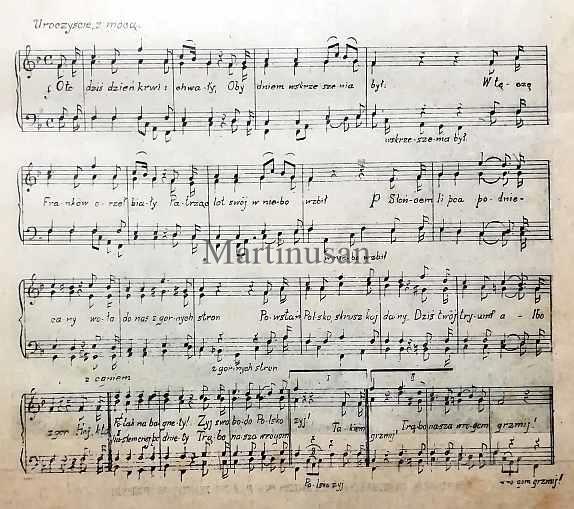 Uroczyście, z mocą.
Oto dziś dzień krwi i chwały, Oby dniem wskrze sze nia był. W tę-czę
wskrze-sze-nia był.
Fra-nków o-rzeł biały Pa-trząc lot swój w niebo wzbił Słoń-cem lipca po-dnie-
Martinusan
wzbił
ca-ny wo-ła do nas z gór-nych stron Po-wstań Pol-sko, skrusz kaj dany. Dziś twój try-umf a-lbo
z gór-nych stron
zgon Hej, kto
I II
Polak na bagnety! Żyj swobodo Polsko żyj! Ta-kiem Trąbo nasza wrogom grzmij!
Trąbo nasza wrogom grzmij
Po-lsko żyj
gom grzmij!